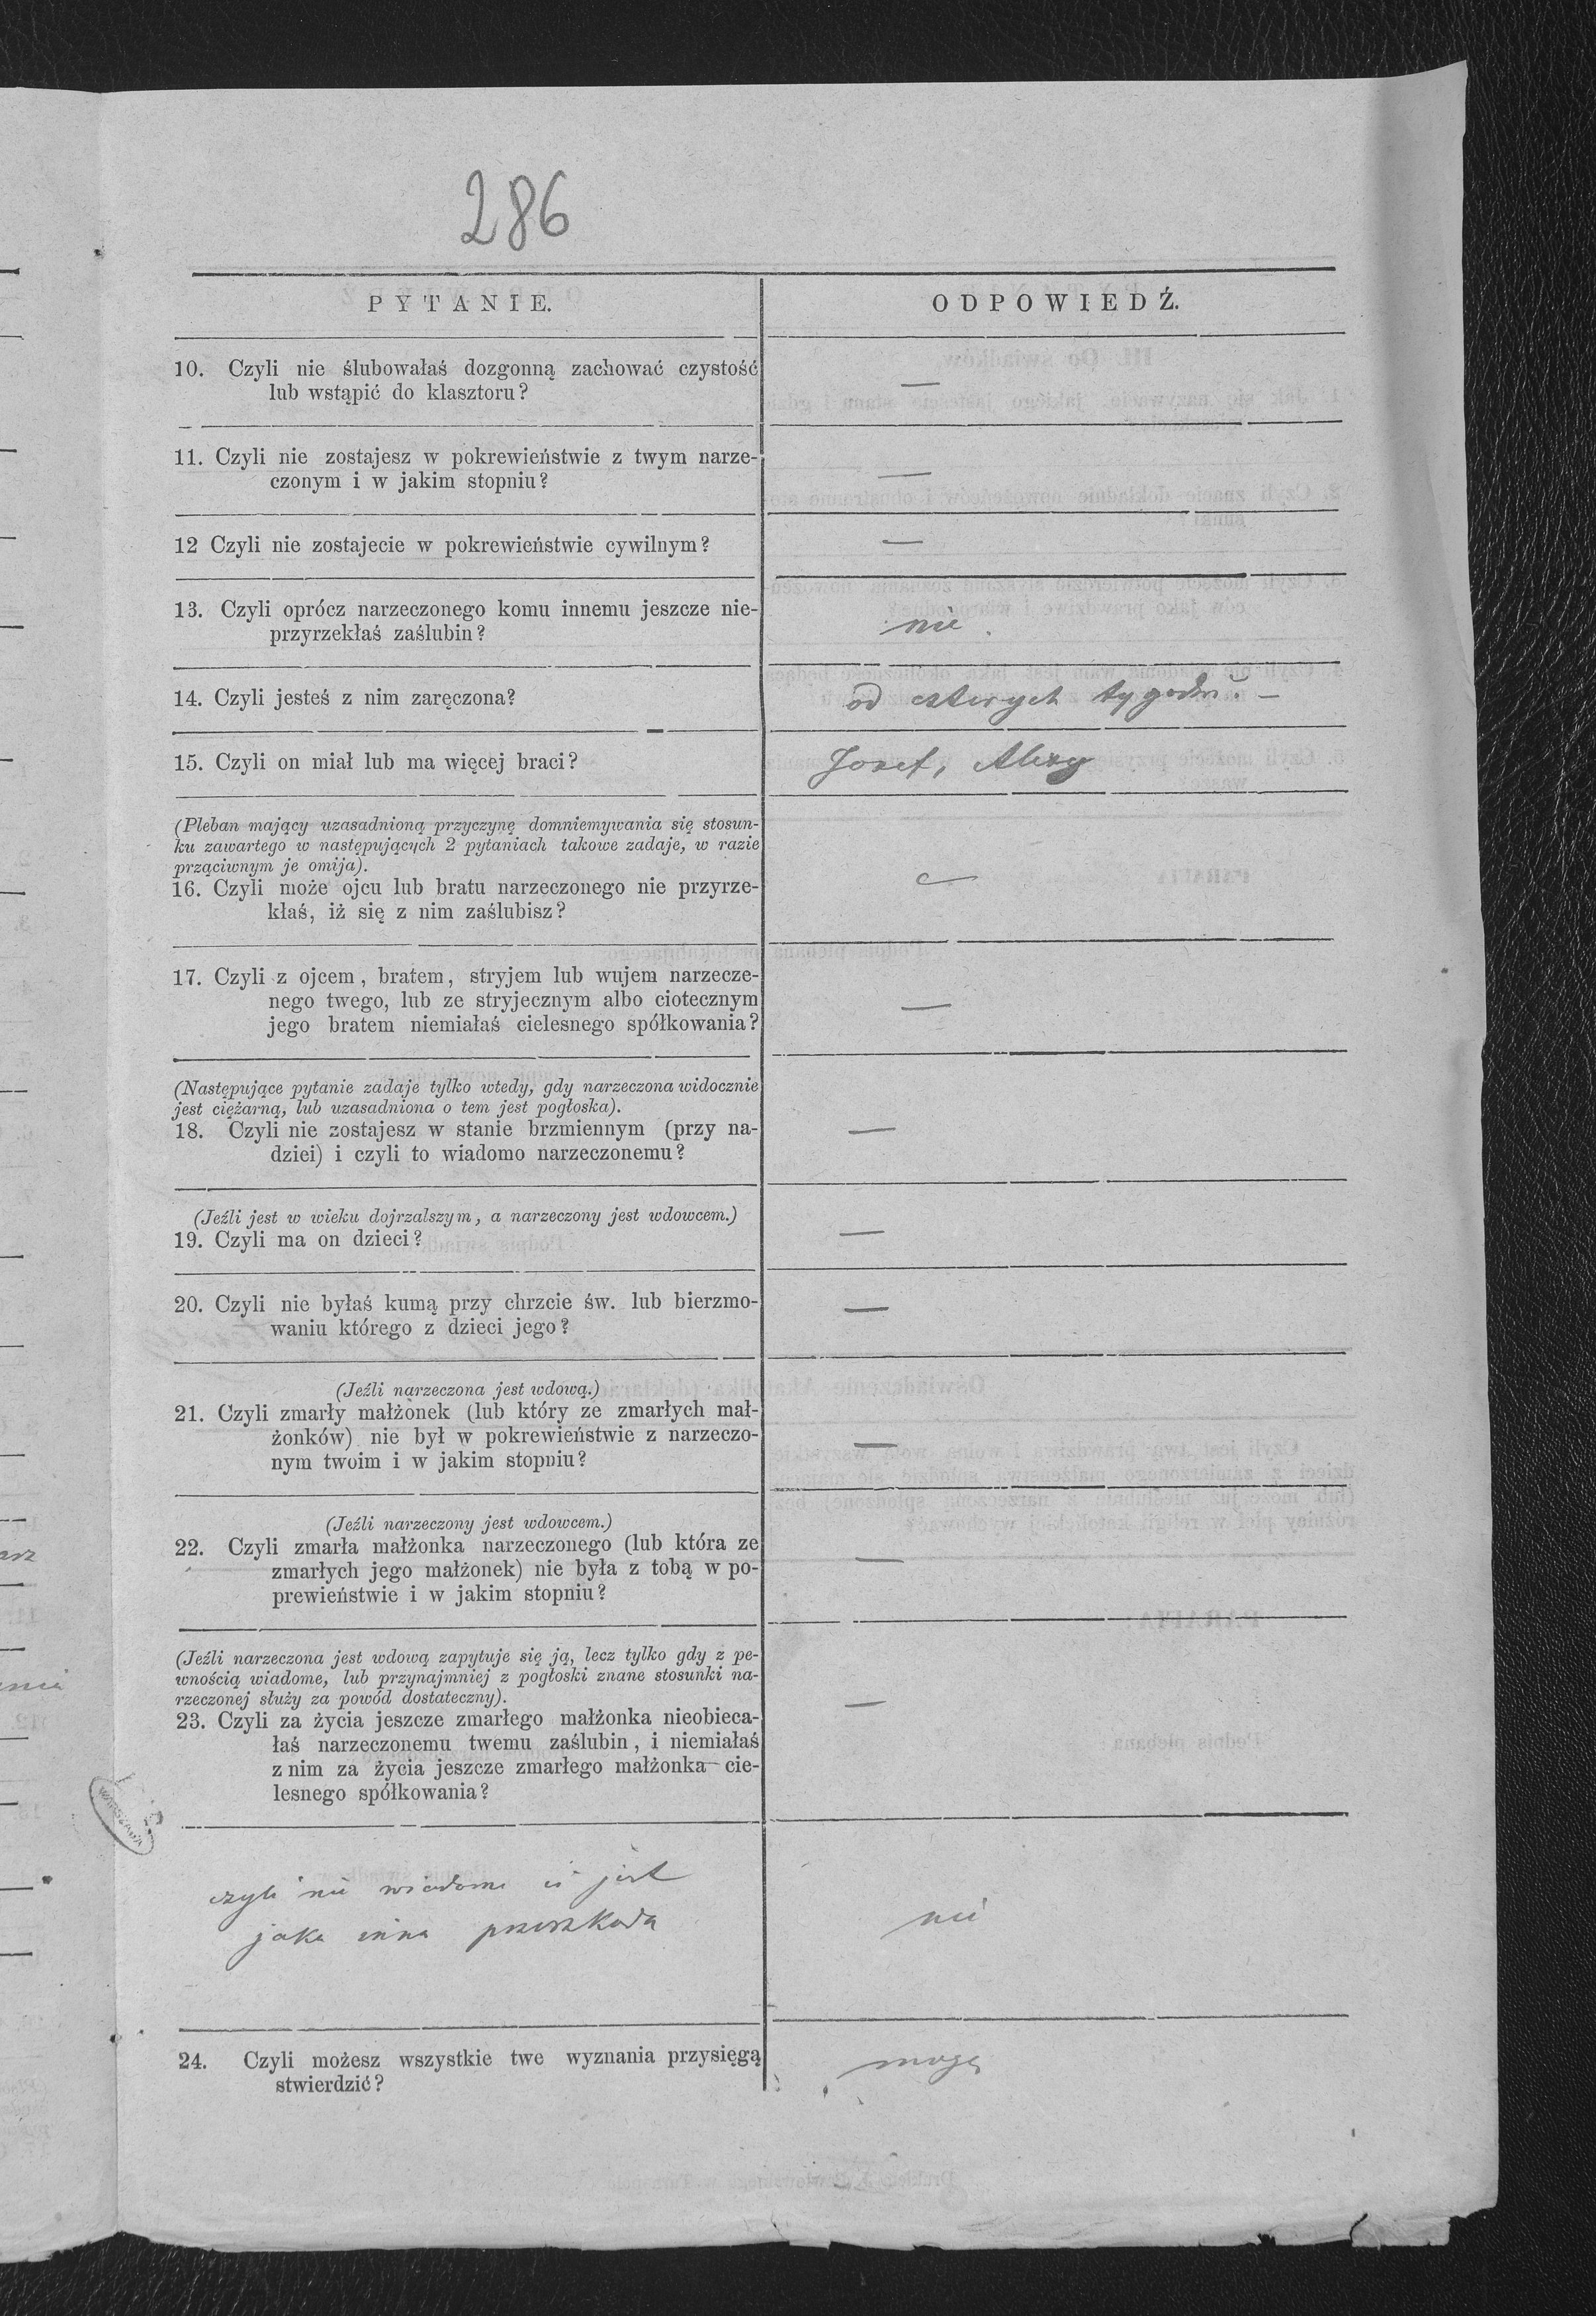 286
PYTANIE.
ODPOWIEDŹ.
10. Czyli nie ślubowałaś dozgonną zachować czystość
lub wstąpić do klasztoru?
—
11. Czyli nie zostajesz w pokrewieństwie z twym narze-
czonym i w jakim stopniu?
—
12 Czyli nie zostajecie w pokrewieństwie cywilnym?
—
13. Czyli oprócz narzeczonego komu innemu jeszcze nie-
przyrzekłaś zaślubin?
nie.
14. Czyli jesteś z nim zaręczona?
od czterych tygodni. —
15. Czyli on miał lub ma więcej braci?
Jozef, Alexy
(Pleban mający uzasadnioną przyczynę domniemywania się stosun-
ku zawartego w następujących 2 pytaniach takowe zadaje, w razie
prząciwnym je omija).
16. Czyli może ojcu lub bratu narzeczonego nie przyrze-
kłaś, iż się z nim zaślubisz?
—
17. Czyli z ojcem, bratem, stryjem lub wujem narzecze-
nego twego, lub ze stryjecznym albo ciotecznym
jego bratem niemiałaś cielesnego spółkowania?
—
(Następujące pytanie zadaje tylko wtedy, gdy narzeczona widocznie
jest ciężarną, lub uzasadniona o tem jest pogłoska).
18. Czyli nie zostajesz w stanie brzmiennym (przy na-
dziei) i czyli to wiadomo narzeczonemu?
—
(Jeźli jest w wieku dojrzalszym, a narzeczony jest wdowcem.)
19. Czyli ma on dzieci?
—
20. Czyli nie byłaś kumą przy chrzcie św. lub bierzmo-
waniu którego z dzieci jego?
—
(Jeźli narzeczona jest wdową.)
21. Czyli zmarły małżonek (lub który ze zmarłych mał-
żonków) nie był w pokrewieństwie z narzeczo-
nym twoim i w jakim stopniu?
—
(Jeźli narzeczony jest wdowcem.)
22. Czyli zmarła małżonka narzeczonego (lub która ze
zmarłych jego małżonek) nie była z tobą w po-
prewieństwie i w jakim stopniu?
—
(Jeźli narzeczona jest wdową zapytuje się ją, lecz tylko gdy z pe-
wnością wiadome, lub przynajmniej z pogłoski znane stosunki na-
rzeczonej służy za powód dostateczny).
23. Czyli za życia jeszcze zmarłego małżonka nieobieca-
łaś narzeczonemu twemu zaślubin, i niemiałaś
z nim za życia jeszcze zmarłego małżonka cie-
lesnego spółkowania?
—
WARSZAWA
czyli nie wiadome ci jest
jaka inna przeszkoda
nie
24. Czyli możesz wszystkie twe wyznania przysięgą
stwierdzić?
mogę